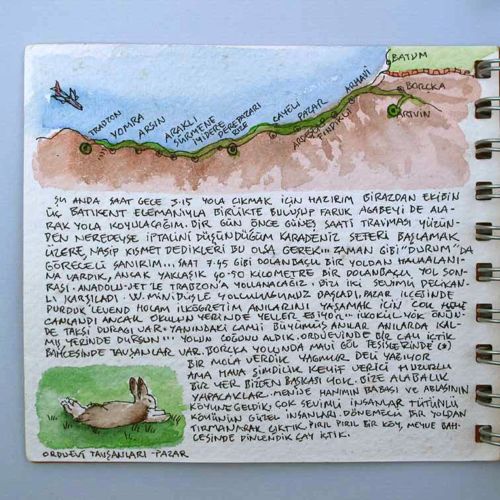 BATUM
BORÇKA
ARTVİN
ARHAVİ
FINDIKLI
ARDEŞEN
PAZAR
ÇAYELİ
RİZE
DEREPAZARI
İYİDERE
SÜRMENE
ARAKLI
ARSİN
YOMRA
TRABZON
ŞU ANDA SAAT GECE 3.15 YOLA ÇIKMAK İÇİN HAZIRIM BİRAZDAN EKİBİN
ÜÇ BATIKENT ELEMANIYLA BİRLİKTE BULUŞUP FARUK AGABEYİ DE ALA-
RAK YOLA KOYULACAĞIM. BİR GÜN ÖNCE GÜNEŞ SAATİ TRAVMASI YÜZÜN-
DEN NEREDEYSE İPTALİNİ DÜŞÜNDÜĞÜM KARADENİZ SEFERİ BAŞLAMAK
ÜZERE, NASIP KISMET DEDİKLERİ BU OLSA GEREK... ZAMAN GİBİ DURUM'DA
GÖRECELİ SANIRIM... SAAT 7.45 GİBİ DOLANBAÇLI BİR YOLDAN HAVAALANI-
NA VARDIK, ANCAK YAKLAŞIK 40-50 KİLOMETRE BİR DOLANBAÇLI YOL SON-
RASI. ANADOLU-JET'LE TRABZON'A YOLLANACAĞIZ. BİZİ İKİ SEVİMLİ DELİKAN-
LI KARŞILADI. W. MİNİBÜSLE YOLCULUĞUMUZ BAŞLADI, PAZAR İLÇESİNDE
DURDUK LEVEND HOCAM İLKÖĞRETİM ANILARINI YAŞAMAK İÇİN ÇOK HEVE
CANLANDI ANCAK OKULUN YERİNDE YELLER ESİYOR... İLKOKUL YOK ÖNÜN-
DE TAKSİ DURAĞI VAR. YANINDAKİ CAMİİ BÜYÜMÜŞ ANILAR ANILARDA KAL-
MIŞ YERİNDE DURSUN... YOLUN ÇOĞUNU ALDIK. ORDUEVİNDE BİR ÇAY İÇTİK
BAHÇESİNDE TAVŞANLAR VAR. BORÇKA YOLUNDA MAVİ GÖL TESİSLERİNDE
BİR MOLA VERDİK YAĞMUR DELİ YAĞIYOR
AMA HAVA ŞİMDİLİK KEYİF VERİCİ HUZURLU
BİR YER BİZDEN BAŞKASI YOK. BİZE ALABALIK
YAPACAKLAR. MENİŞE HANIMIN BABASI VE ABLASININ
KÖYÜNE GELDİK, ÇOK SEVİMLİ İNSANLAR TÜTÜNLÜ
KÖYÜNÜN GÜZEL İNSANLARI. DÖNEMEÇLİ BİR YOLDAN
TIRMANARAK ÇIKTIK. PIRIL PIRIL BİR KÖY, MEYVE BAH-
ÇESİNDE DİNLENDİK ÇAY İÇTİK.
ORDUEVİ TAVŞANLARI - PAZAR